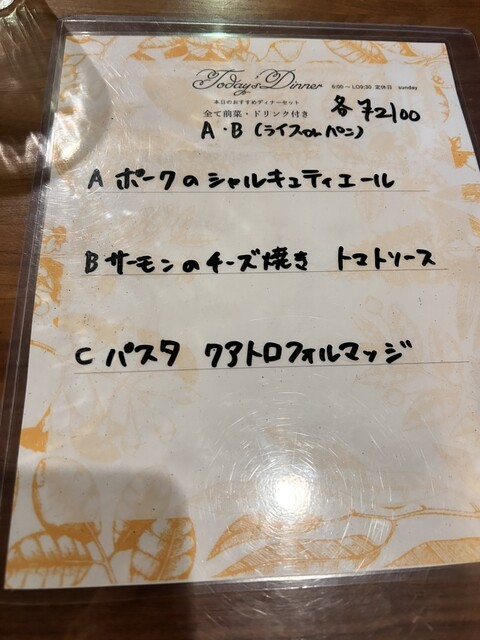 Today's Dinner 6:00～LO9:30 定休日 sunday
本日のおすすめディナーセット
全て前菜・ドリンク付き 各¥2100
A・B(ライスorパン)
A ポークのシャルキュティエール
B サーモンのチーズ焼き トマトソース
C パスタ クアトロフォルマッジ